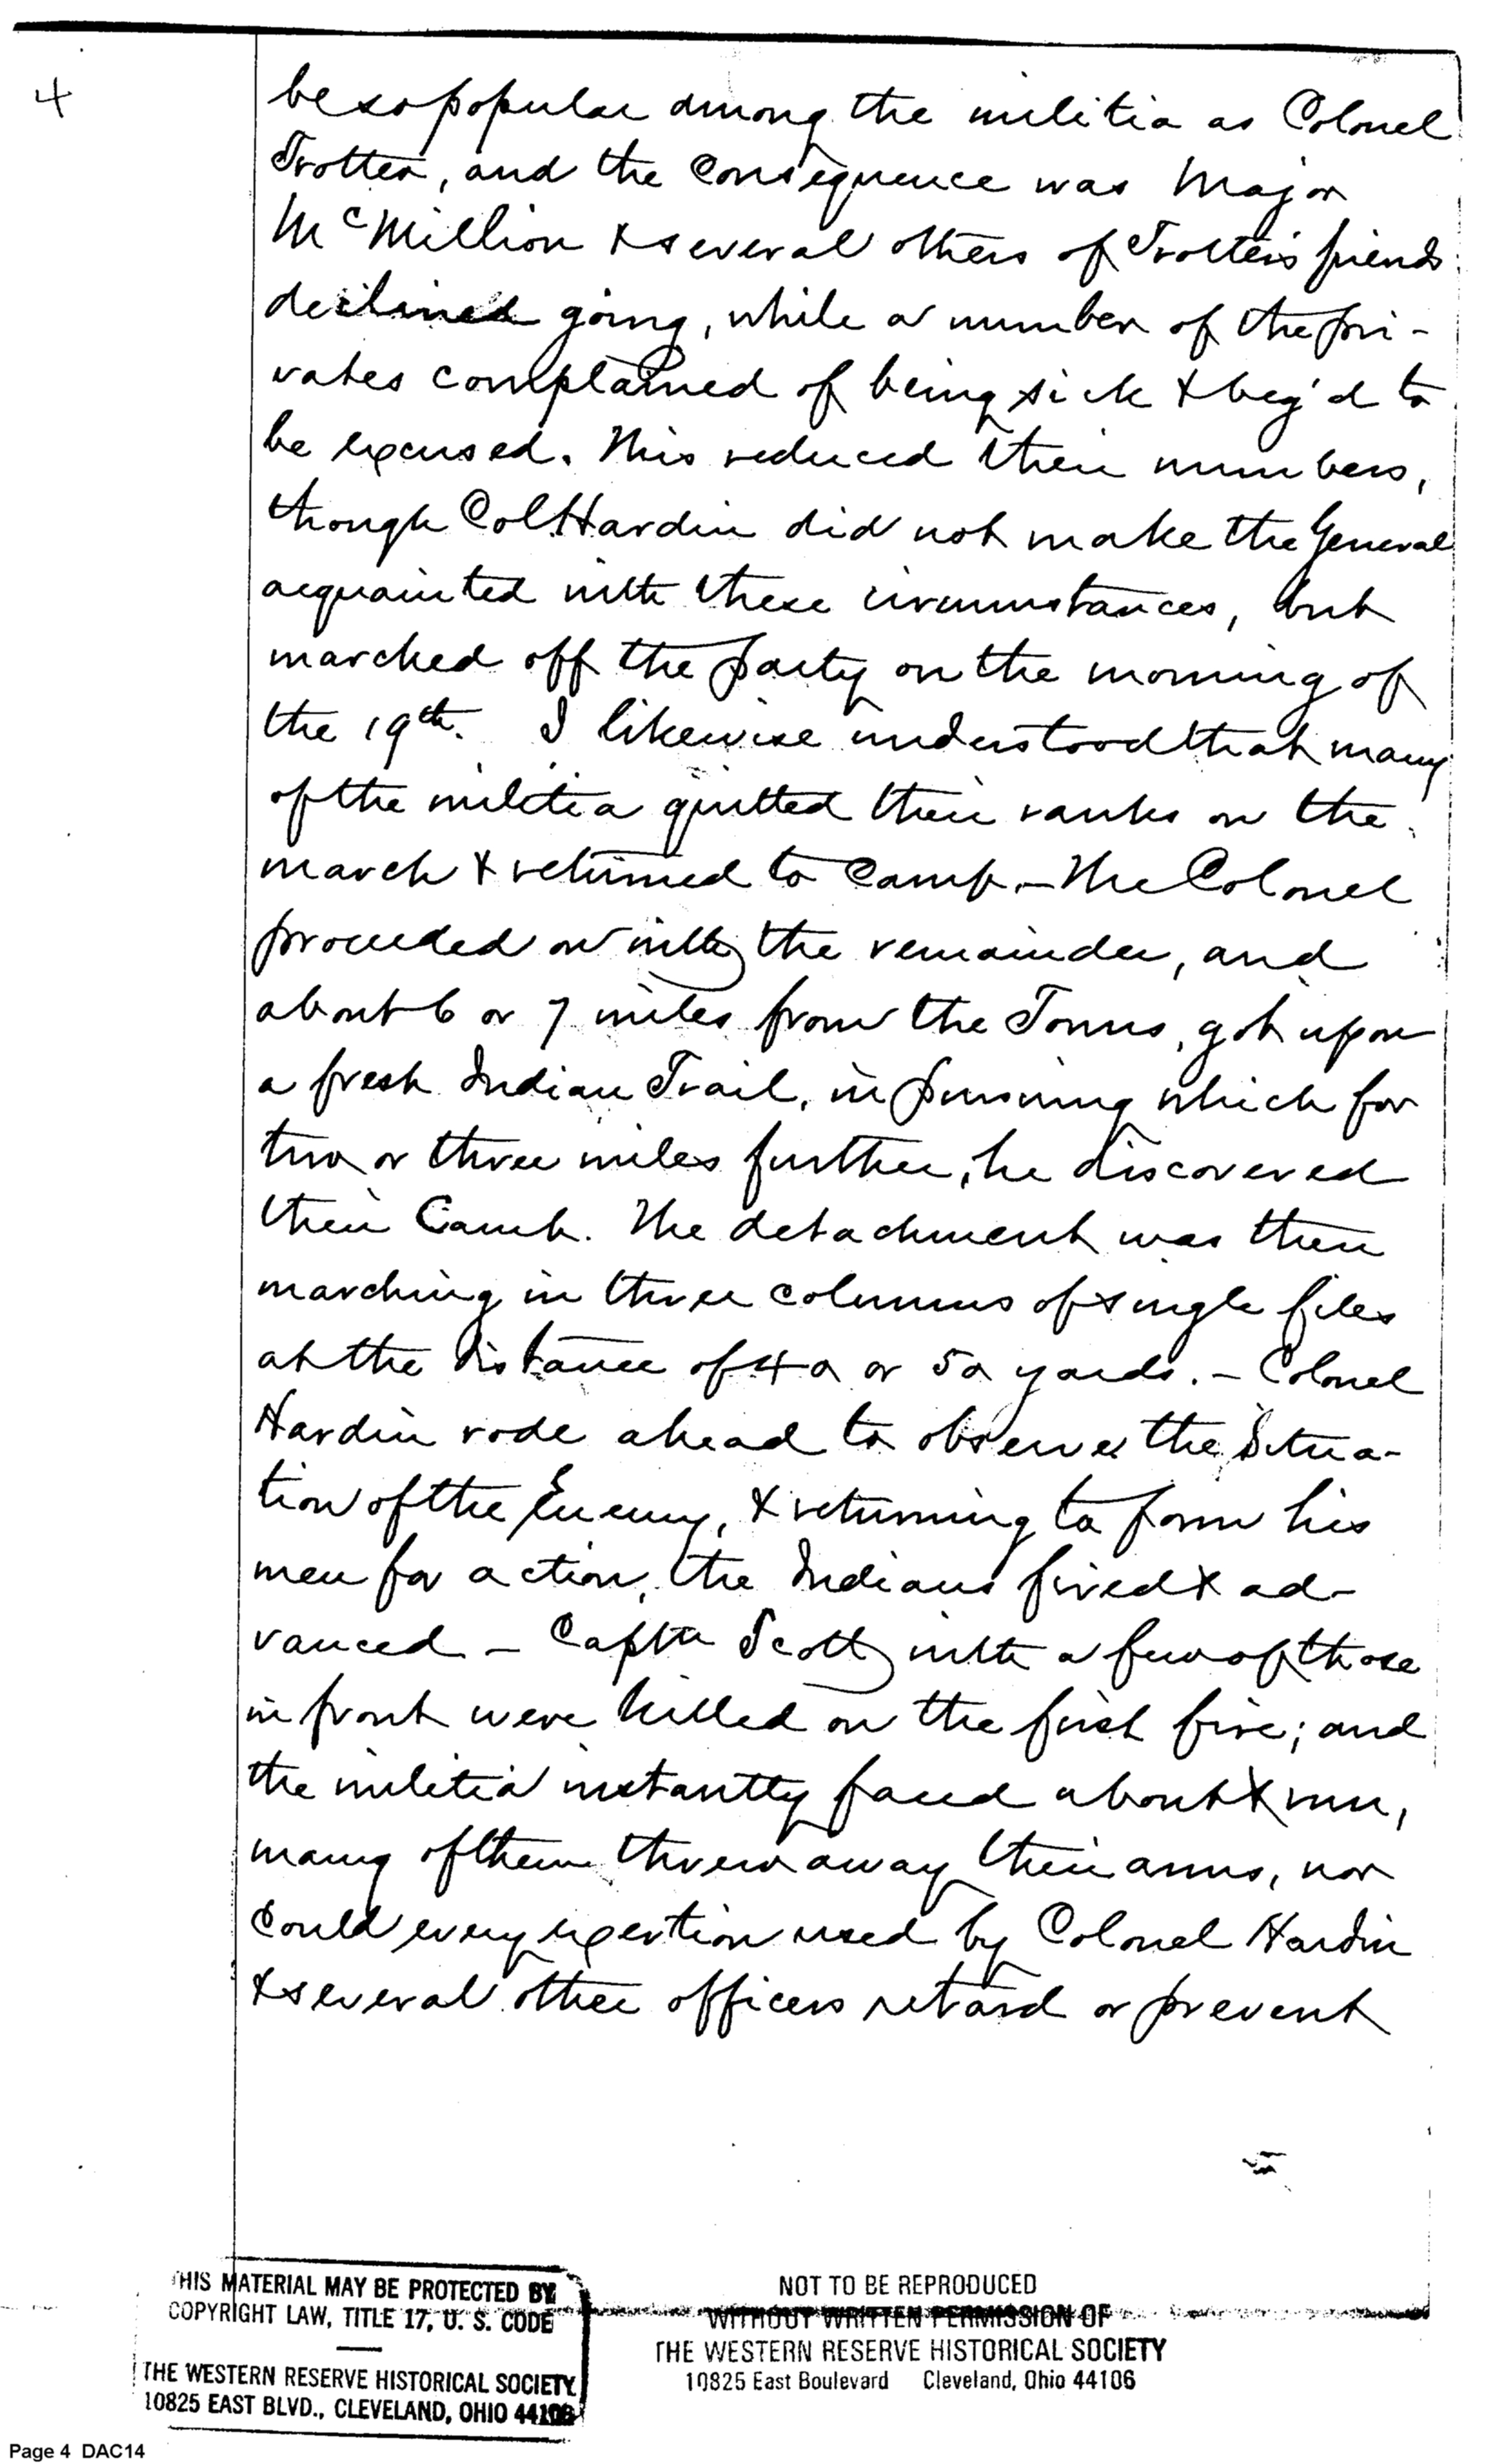 4
be so popular among the militia as Colonel
Trotter, and the Consequence was Major
McMillion & several others of Trotter's friends
declined going, while a number of the pri-
vates complained of being sick & beg'd to
be excused. This reduced their numbers,
though Col. Hardin did not make the General
acquainted with these circumstances, but
marched off the party on the morning of
the 19th. I likewise understood that many
of the militia quitted their ranks on the
march & returned to Camp. - The Colonel
proceeded on with the remainder, and
about 6 or 7 miles from the Towns, got upon
a fresh Indian Trail, in pursuing which for
two or three miles further, he discovered
their Camp. The detachment was then
marching in three columns of single files
at the distance of 40 or 50 yards. - Colonel
Hardin rode ahead to observe the Situa-
tion of the Enemy, & returning to form his
men for action, the Indians fired & ad-
vanced - Captn Scott with a few of those
in front were killed on the first fire; and
the militia instantly faced about & run,
many of them threw away their arms, nor
Could every exertion used by Colonel Hardin
& several other officers retard or prevent
THIS MATERIAL MAY BE PROTECTED BY
COPYRIGHT LAW, TITLE 17, U. S. CODE
THE WESTERN RESERVE HISTORICAL SOCIETY
10825 EAST BLVD., CLEVELAND, OHIO 44106
NOT TO BE REPRODUCED
WITHOUT WRITTEN PERMISSION OF
THE WESTERN RESERVE HISTORICAL SOCIETY
10825 East Boulevard Cleveland, Ohio 44106
Page 4 DAC14